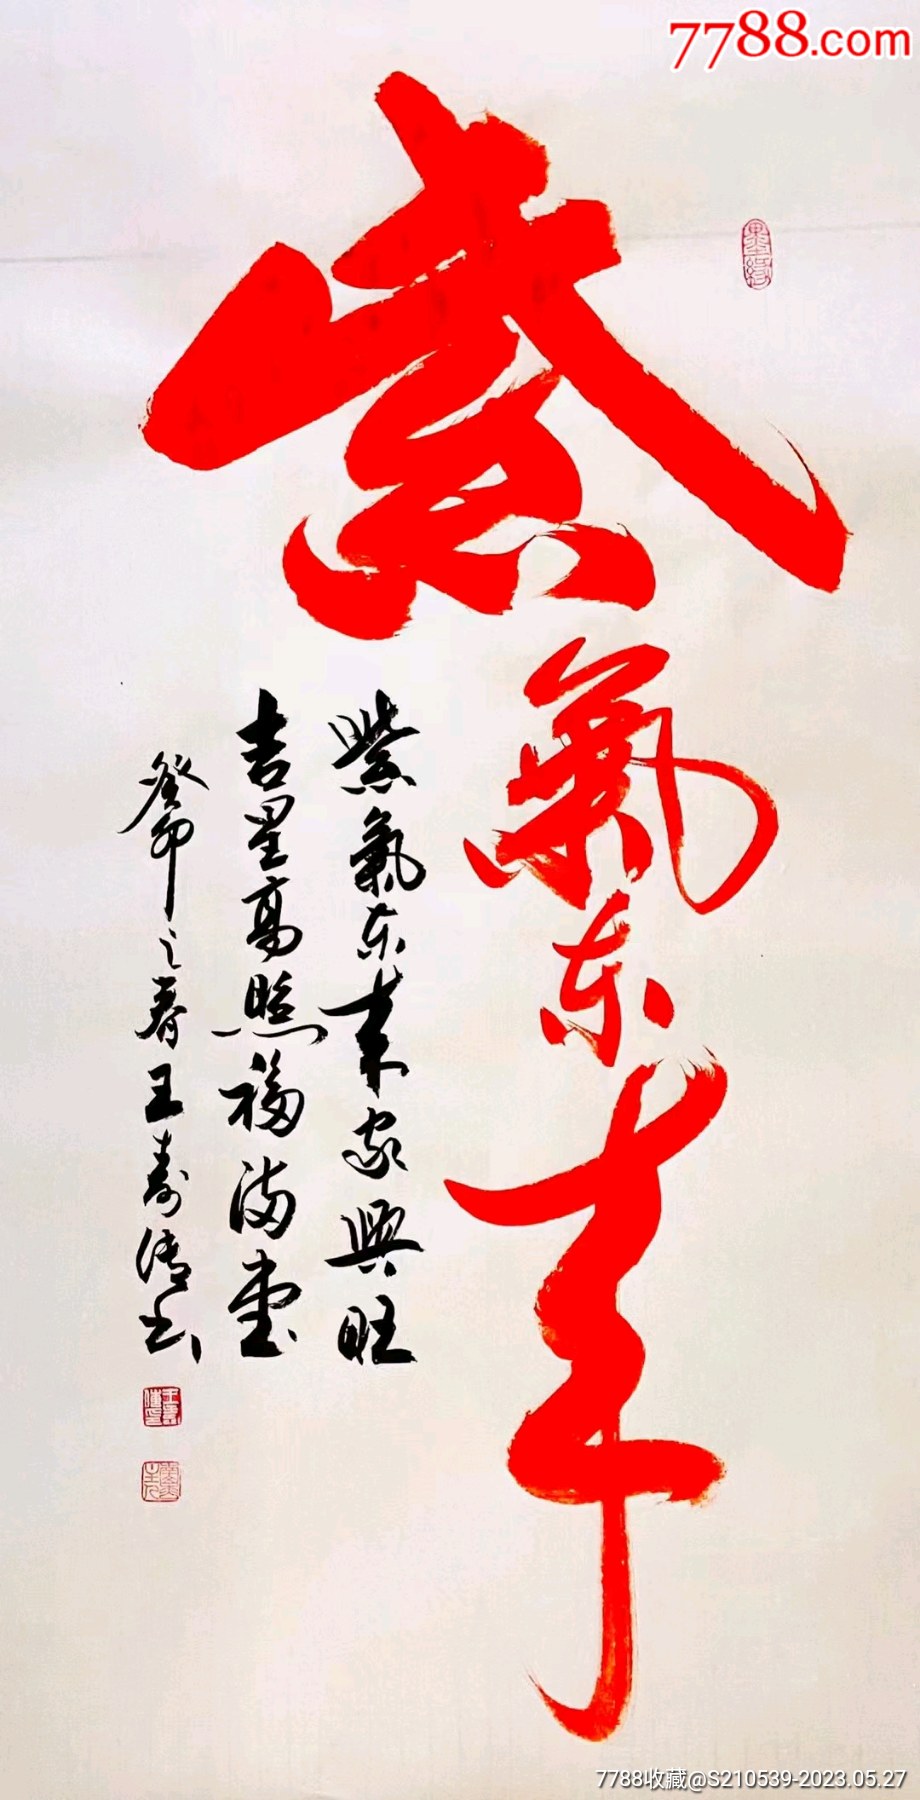 7788.com
墨缘
紫氣东来
紫氣东来家興旺
吉星高照福满堂
癸卯之春王寿倩书
7788收藏@S210539-2023.05.27